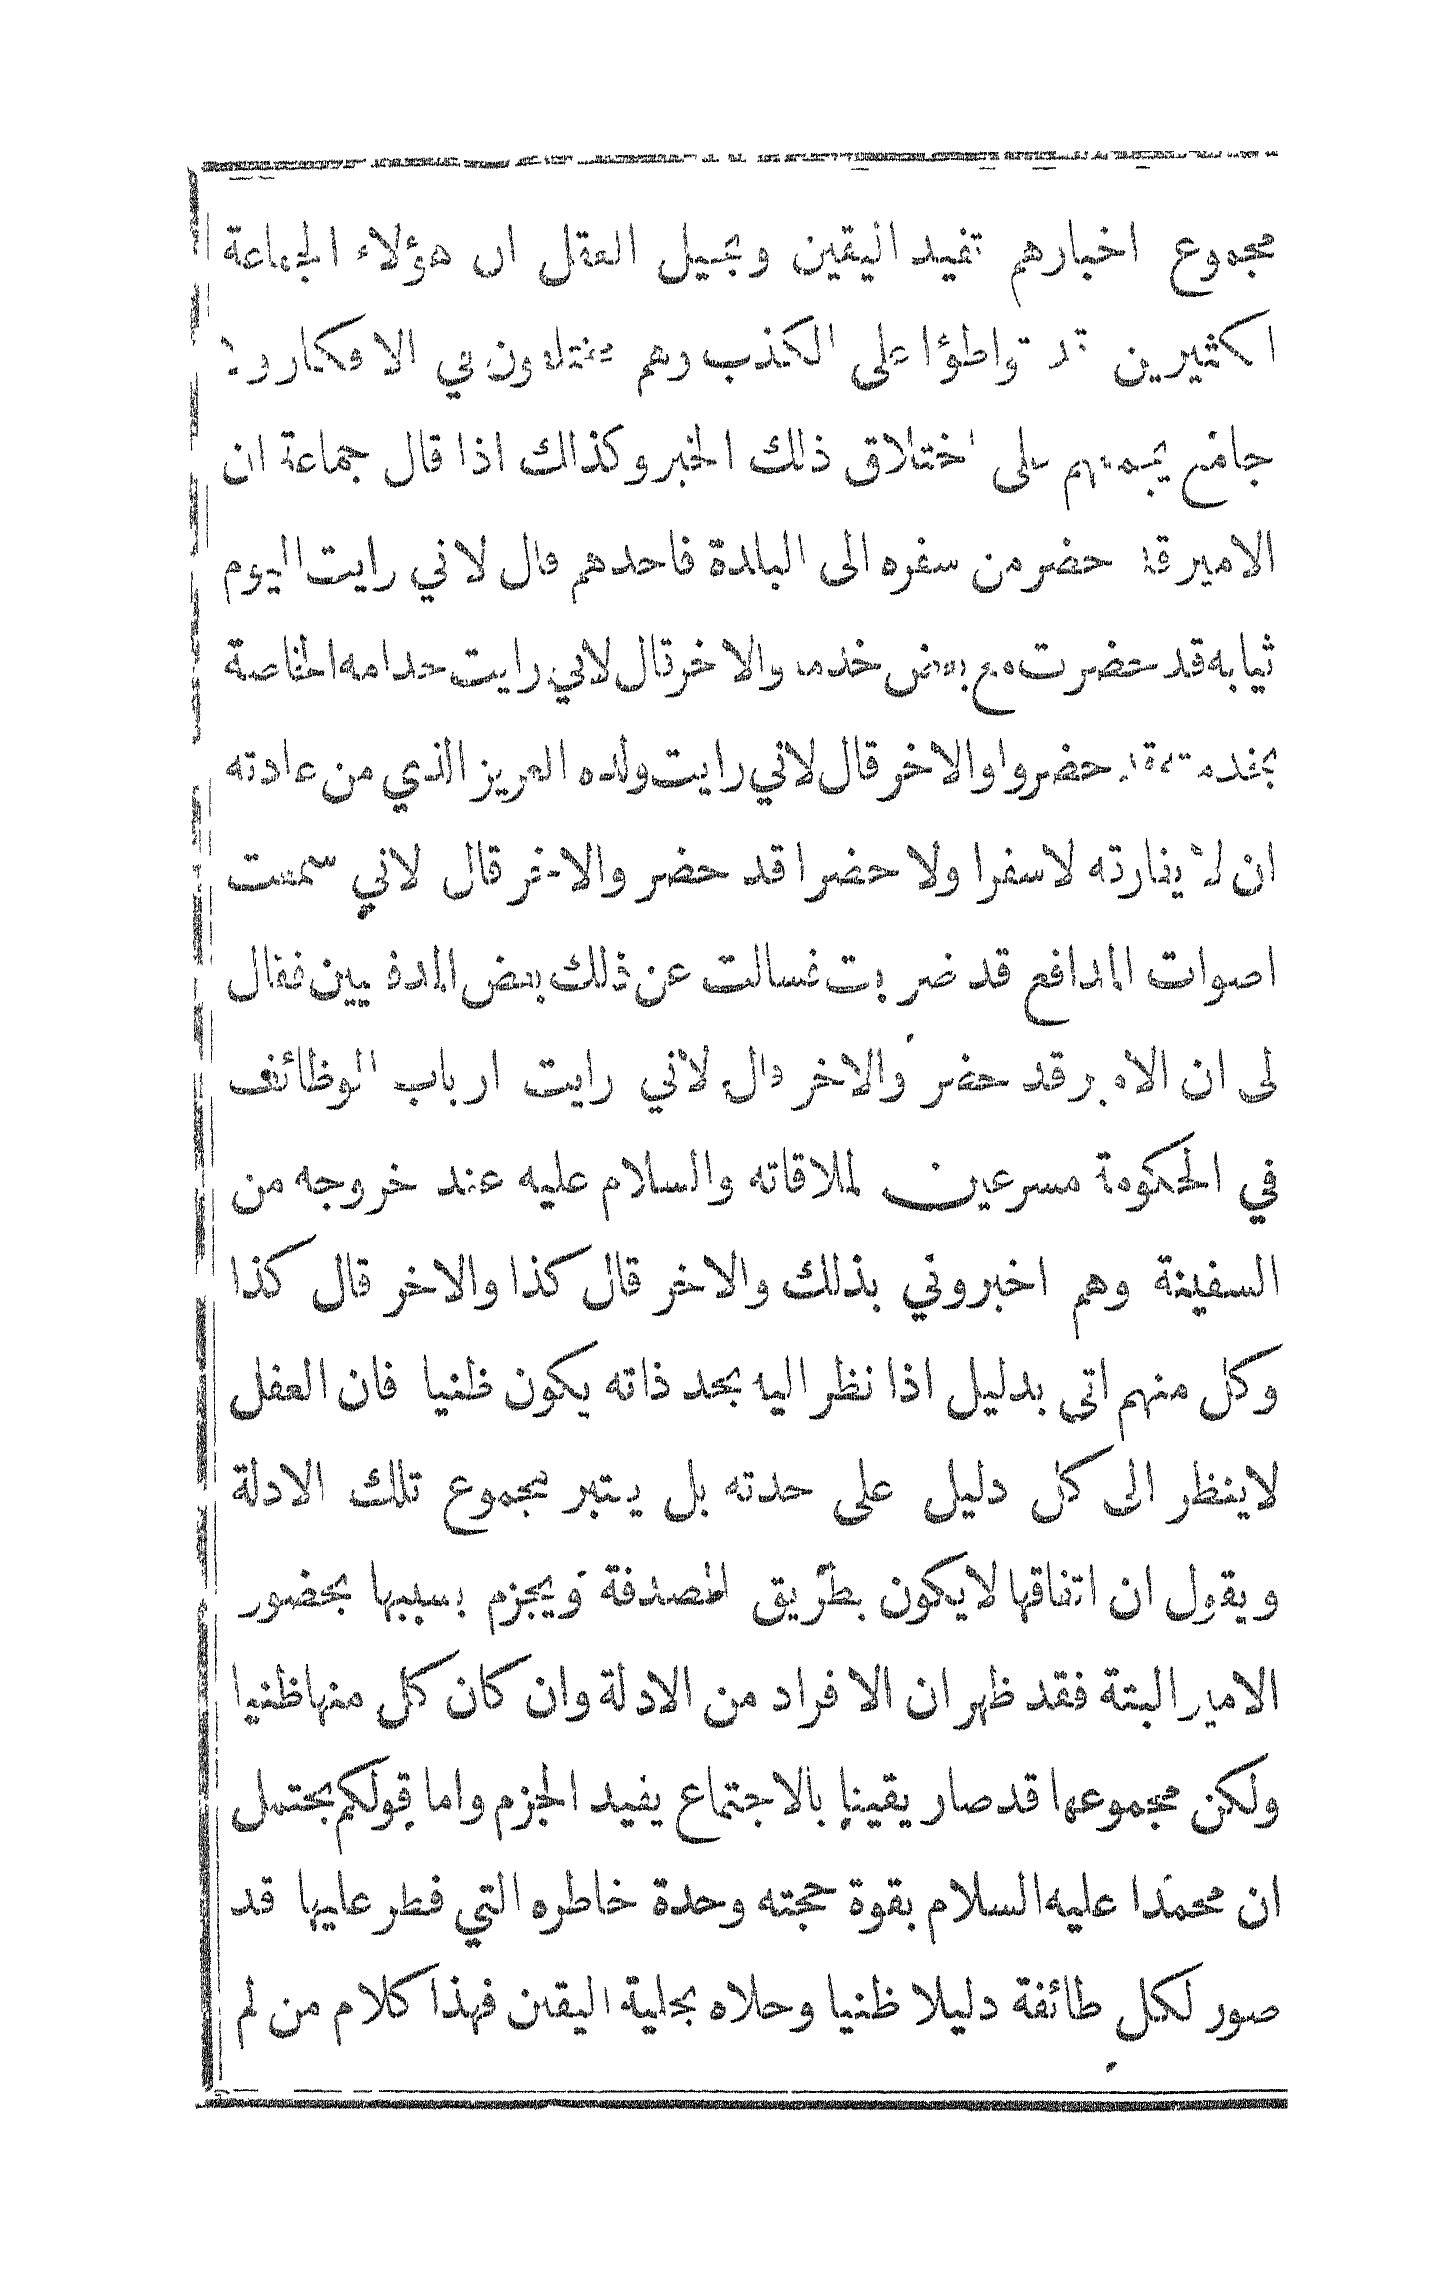 مجموع اخبارهم تفيد اليقين ويحيل العقل ان هؤلاء الجماعة
اكثيرين قد تواطؤا على الكذب وهم مختلفون في الافكار ولا
جامع يجمعهم على اختلاق ذلك الخبر وكذالك اذا قال جماعة ان
الامير قد حضر من سفره الى البلدة فاحدهم قال لاني رايت اليوم
ثيابه قد حضرت مع بعض خدمه والاخر قال لاني رايت خدامه الخاصة
بخدمته قد حضروا والاخر قال لاني رايت ولده العزيز الذي من عادته
ان لا يفارقه لا سفرا ولا حضرا قد حضر والاخر قال لاني سمعت
اصوات المدافع قد ضربت فسالت عن ذلك بعض المدفعيين فقال
لى ان الامير قد حضر والاخر قال لاني رايت ارباب الوظائف
في الحكومة مسرعين لملاقاته والسلام عليه عند خروجه من
السفينة وهم اخبروني بذلك والاخر قال كذا والاخر قال كذا
وكل منهم اتى بدليل اذا نظر اليه بحد ذاته يكون ظنيا فان العقل
لا ينظر الى كل دليل على حدته بل يعتبر مجموع تلك الادلة
ويقول ان اتفاقها لا يكون بطريق المصدفة ويجزم بسببها بحضور
الامير البتة فقد ظهر ان الافراد من الادلة وان كان كل منها ظنيا
ولكن مجموعها قد صار يقينا بالاجتماع يفيد الجزم واما قولكم يحتمل
ان محمدا عليه السلام بقوة حجته وحدة خاطره التي فطر عليها قد
صور لكل طائفة دليلا ظنيا وحلاه بحلية اليقين فهذا كلام من لم